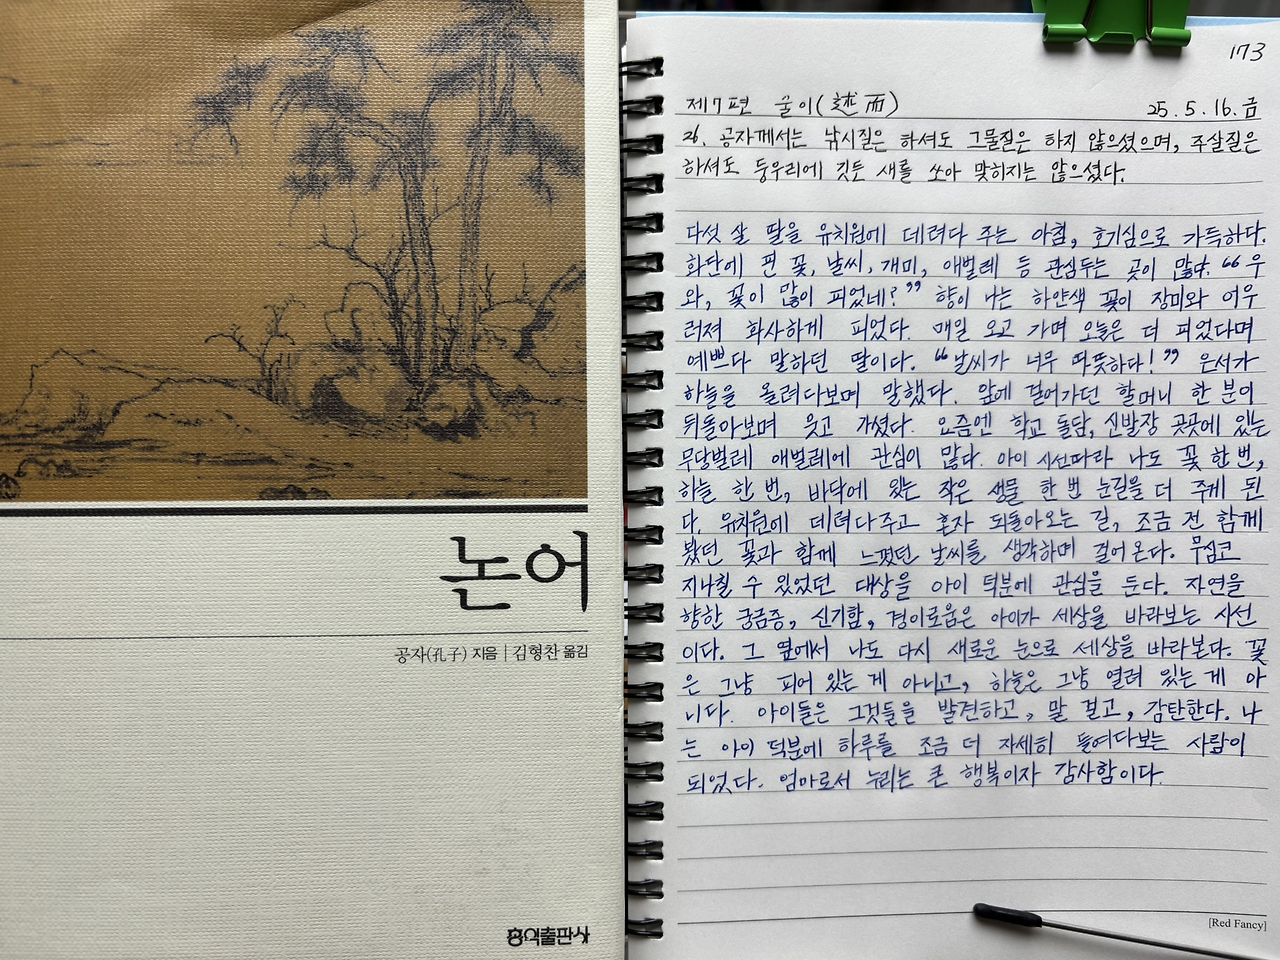 논어
공자(孔子) 지음 | 김형찬 옮김
홍익출판사
173
제7편 술이(述而) 25.5.16.금
26. 공자께서는 낚시질은 하셔도 그물질은 하지 않으셨으며, 주살질은
하셔도 둥우리에 깃든 새를 쏘아 맞히지는 않으셨다.
다섯 살 딸을 유치원에 데려다 주는 아침, 호기심으로 가득하다.
화단에 핀 꽃, 날씨, 개미, 애벌레 등 관심두는 곳이 많다. “우
와, 꽃이 많이 피었네?” 향이 나는 하얀색 꽃이 장미와 어우
러져 화사하게 피었다. 매일 오고 가며 오늘은 더 피었다며
예쁘다 말하던 딸이다. “날씨가 너무 따뜻하다!” 은서가
하늘을 올려다보며 말했다. 앞에 걸어가던 할머니 한 분이
뒤돌아보며 웃고 가셨다. 요즘엔 학교 돌담, 신발장 곳곳에 있는
무당벌레 애벌레에 관심이 많다. 아이 시선따라 나도 꽃 한 번,
하늘 한 번, 바닥에 있는 작은 생물 한 번 눈길을 더 주게 된
다. 유치원에 데려다주고 혼자 되돌아오는 길, 조금 전 함께
봤던 꽃과 함께 느꼈던 날씨를 생각하며 걸어온다. 무심코
지나칠 수 있었던 대상을 아이 덕분에 관심을 둔다. 자연을
향한 궁금증, 신기함, 경이로움은 아이가 세상을 바라보는 시선
이다. 그 옆에서 나도 다시 새로운 눈으로 세상을 바라본다. 꽃
은 그냥 피어 있는 게 아니고, 하늘은 그냥 열려 있는 게 아
니다. 아이들은 그것들을 발견하고, 말 걸고, 감탄한다. 나
는 아이 덕분에 하루를 조금 더 자세히 들여다보는 사람이
되었다. 엄마로서 누리는 큰 행복이자 감사함이다.
[Red Fancy]